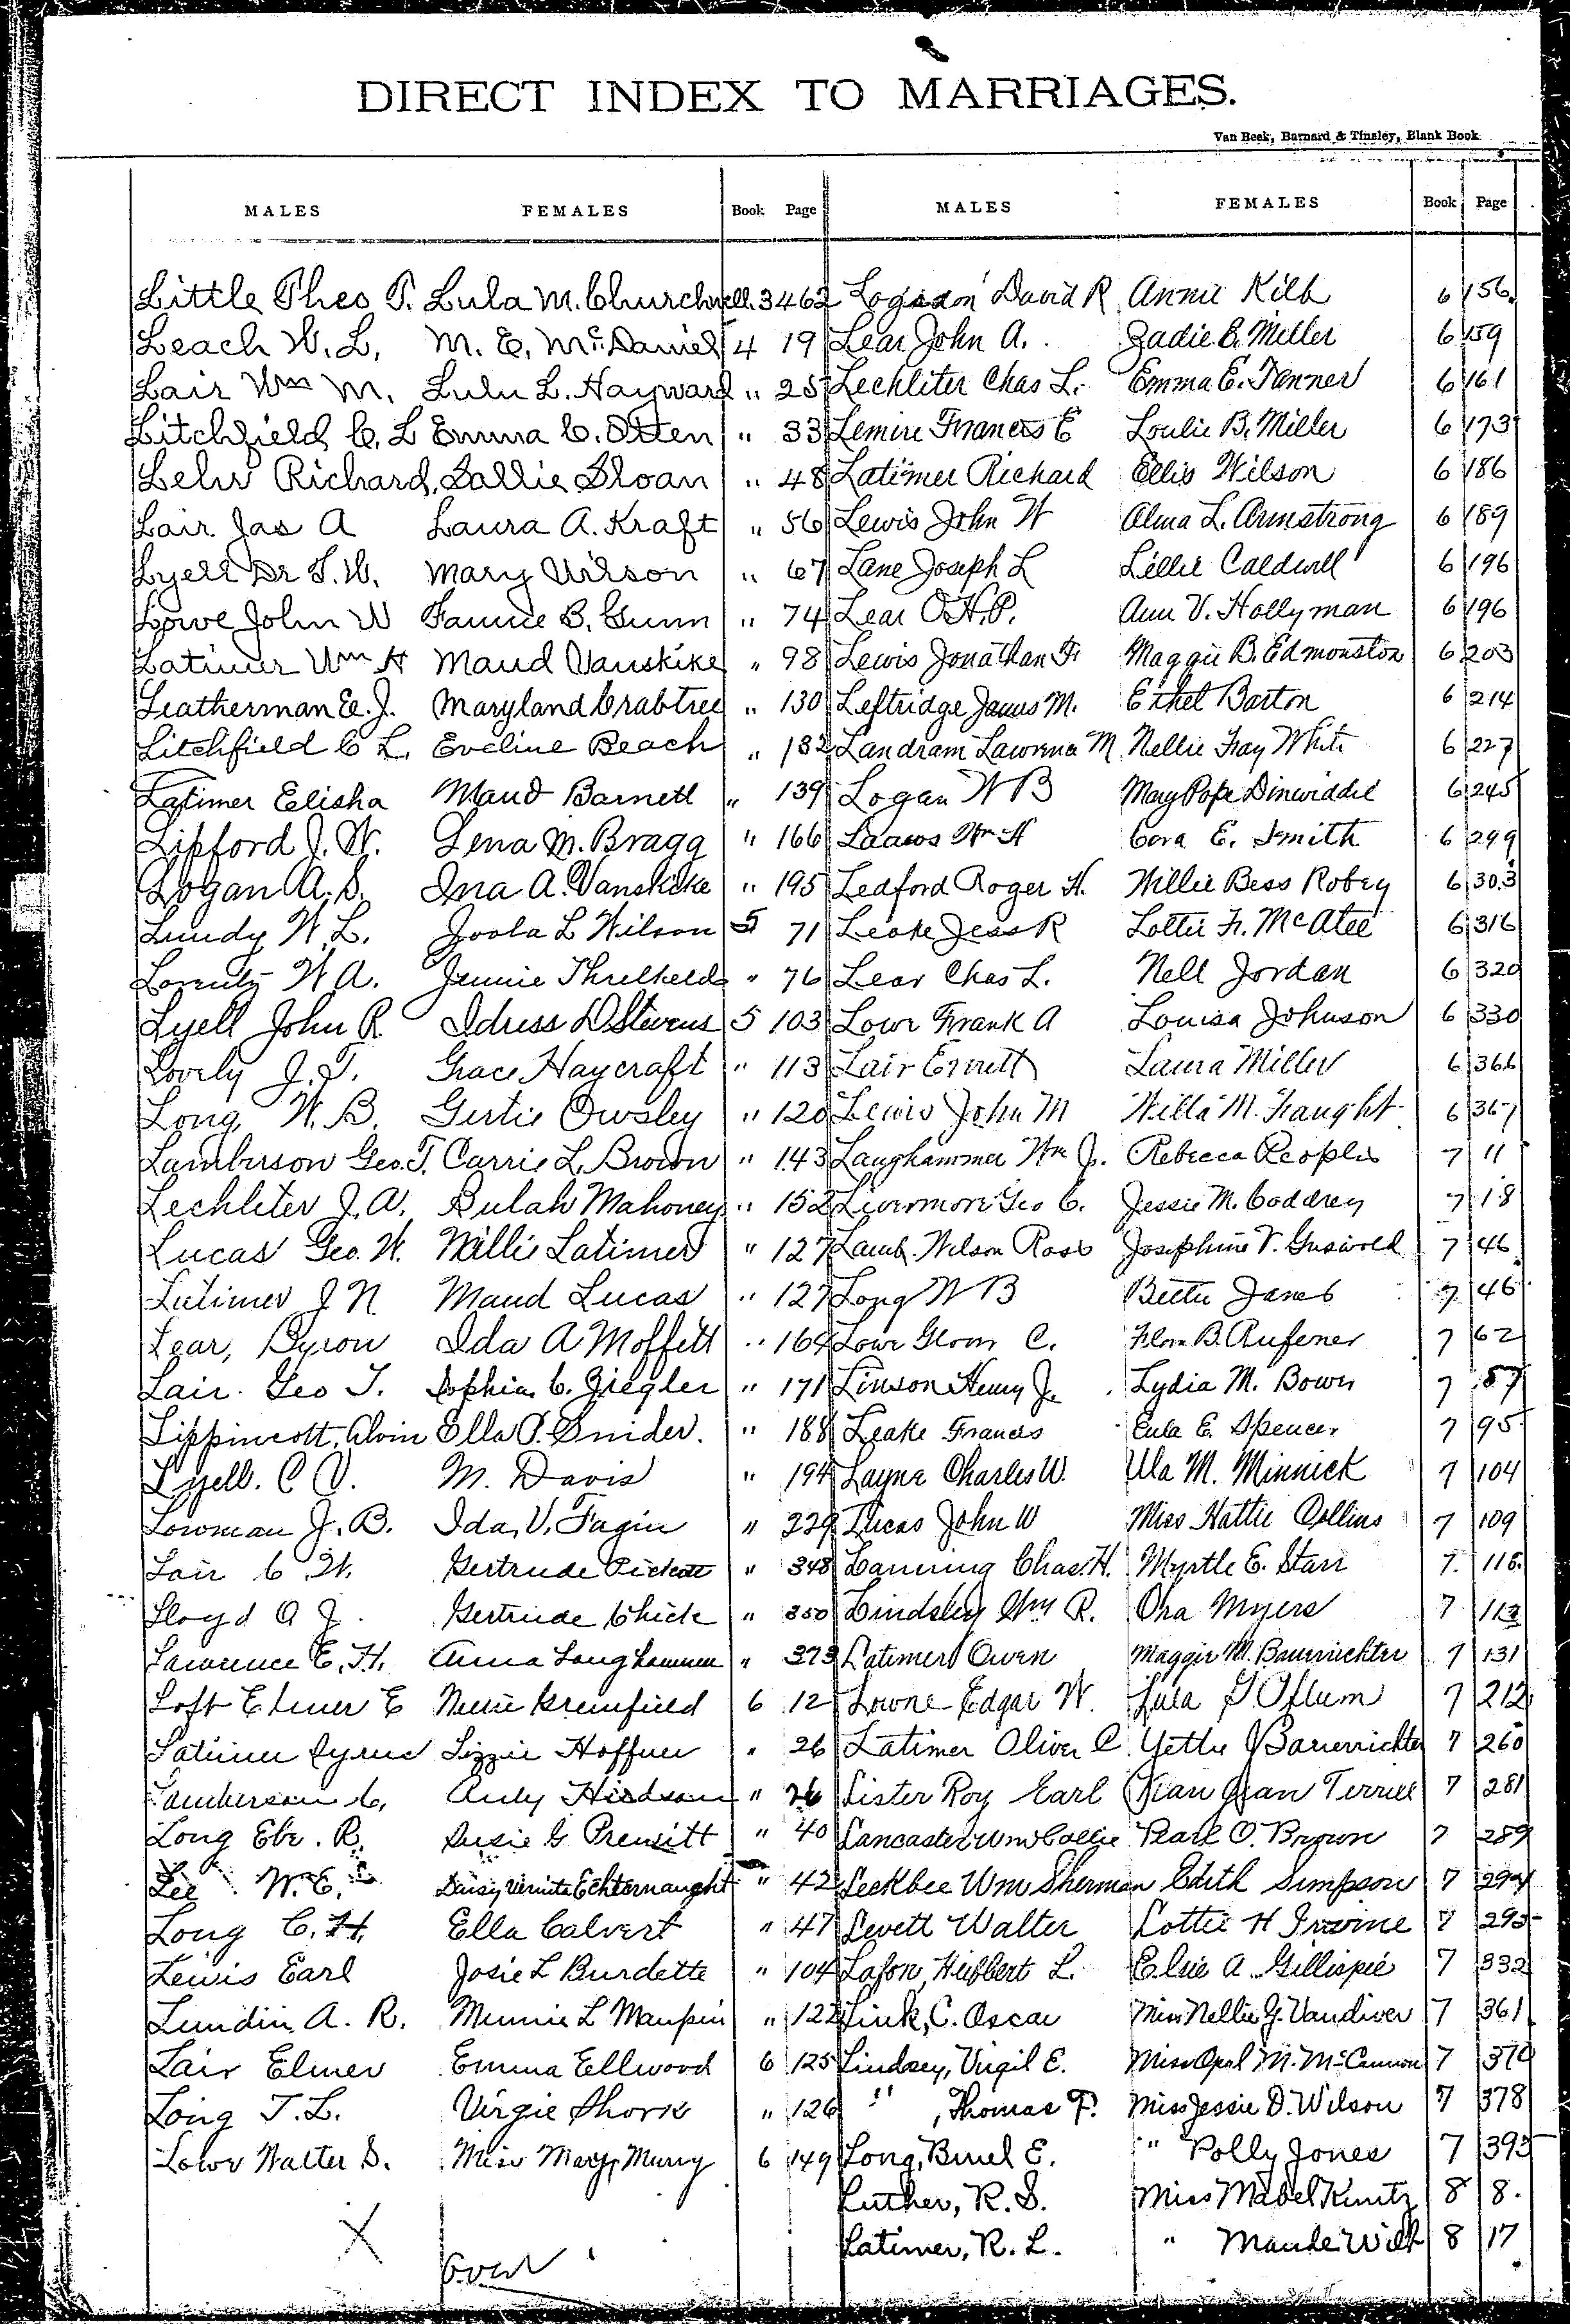 DIRECT INDEX TO MARRIAGES.
Van Beek, Barnard & Tinsley, Blank Book
MALES FEMALES Book Page MALES FEMALES Book Page
Little Theo P. Lula M. Churchwell 3 462 Logsdon David R Annie Kilb 6 156
Leach W. L. M. E. McDaniel 4 19 Lear John A. Zadie E. Miller 6 159
Lair Wm M. Lulu L. Hayward " 25 Lechliter Chas L. Emma E. Tanner 6 161
Litchfield C. L Emma C. Otten " 33 Lemire Francis E Loulie B. Miller 6 173
Lehr Richard, Sallie Sloan " 48 Latimer Richard Ellis Wilson 6 186
Lair Jas A Laura A. Kraft " 56 Lewis John W Alma L. Armstrong 6 189
Lyell Dr T. W. Mary Wilson " 67 Lane Joseph L Lillie Caldwell 6 196
Lowe John W Fannie B. Gunn " 74 Lear O.H.P. Ann V. Hollyman 6 196
Latimer Wm H Maud Vanskike " 98 Lewis Jonathan F. Maggie B. Edmonston 6 203
Leatherman E. J. Maryland Crabtree " 130 Leftridge James M. Ethel Barton 6 214
Litchfield C L. Eveline Beach " 132 Landram Lawrence M. Nellie Fray White 6 227
Latimer Elisha Maud Barnett " 139 Logan W B Mary Pope Dinwiddie 6 245
Lipford J. W. Lena M. Bragg " 166 Laaws Wm H Cora E. Smith 6 299
Logan A. S. Ina A. Vanskike " 195 Ledford Roger H. Willie Bess Robey 6 303
Lundy W. L. Joola L Wilson 5 71 Leake Jess R Lottie F. McAtee 6 316
Lorentz W A. Jennie Threlkeld " 76 Lear Chas L. Nell Jordan 6 320
Lyell John R Idress D Stevens 5 103 Lowe Frank A Louisa Johnson 6 330
Lovely J. T. Grace Haycraft " 113 Lair Emett Laura Miller 6 366
Long W. B. Gertie Owsley " 120 Lewis John M Willa M. Fraught 6 367
Lamberson Geo. T. Carrie L. Brown " 143 Laughammer Wm J. Rebecca Peoples 7 11
Lechliter J. A. Bulah Mahoney " 152 Livermore Geo C. Jessie M. Goddrey 7 18
Lucas Geo. W. Willie Latimer " 127 Lamb Wilson Ross Josephine V. Griswold 7 46
Latimer J N Maud Lucas " 127 Long W B Bettie Janes 7 46
Lear, Byron Ida A Moffett " 164 Lowe Glenn C. Flora B. Rufener 7 62
Lair Geo T. Sophia C. Ziegler " 171 Linson Henry J. Lydia M. Bowen 7 87
Lippincott, Alvin Ella P. Snider. " 188 Leake Francis Eula E. Spencer 7 95
Lyell. C V. M. Davis " 194 Layne Charles W. Ula M. Minnick 7 104
Lowman J. B. Ida V. Fagin " 229 Lucas John W Miss Hattie Collins 7 109
Lair C W. Gertrude Pickett " 348 Lanning Chas. H. Myrtle E. Starr 7 118.
Lloyd O J. Gertrude Chick " 350 Lindsley Wm R. Oha Myers 7 113
Lawrence E. H. Anna Langhammer " 373 Latimer Owen Maggie M. Bauerrichter 7 131
Loft Elmer E Nellie Greenfield 6 12 Lowne Edgar W. Lula G Oflum 7 212
Latimer Cyrus Lizzie Hoffner " 26 Latimer Oliver C. Yettie Bauerrichter 7 260
Lamberson C. Hudson " 26 Lister Roy Earl Terrill 7 281
Long Ebe. R. Susie G. Prewitt " 40 Lancaster Wm Collie Pearl O. Brown 7 289
Lee W. E. Daisy Vernita Echternaught " 42 Leekbee Wm Sherman Edith Simpson 7 294
Long C. H. Ella Calvert " 47 Levett Walter Lottie H Irvine 7 295
Lewis Earl Josie L Burdette " 104 Lafon, Hubbert L. Elsie A. Gillispie 7 332
Lundin A. R. Minnie L Maupin " 122 Link, C. Oscar Miss Nellie G. Vandiver 7 361
Lair Elmer Emma Ellwood 6 125 Lindsey, Virgil E. Miss Opal M. McCannon 7 370
Long T. L. Virgie Shork " 126 " , Thomas F. Miss Jessie D. Wilson 7 378
Lowe Walter S. Miss Mary Murry 6 149 Long, Buel E. " Polly Jones 7 395
Luther, R. S. Miss Mabel Kuntz 8 8.
X Latimer, R. L. " Maude Wilk 8 17
Over